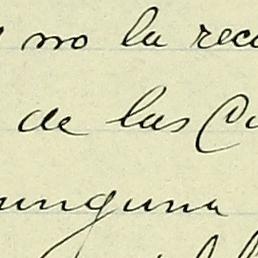 no la reco
de las Cu
ninguna